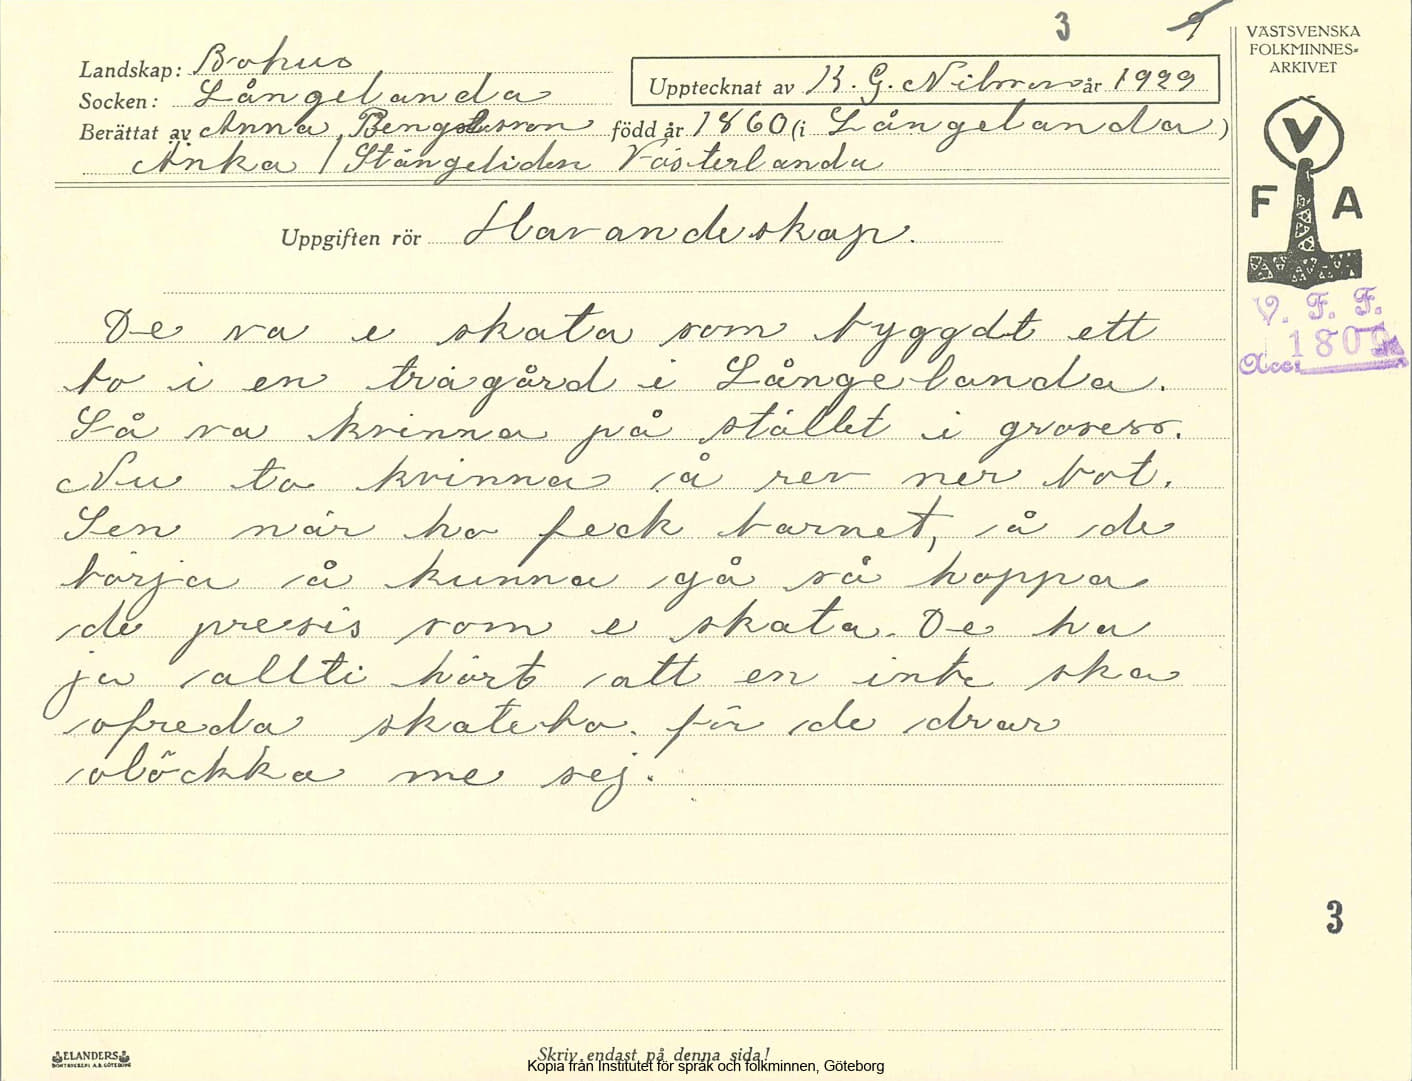 3 9
VÄSTSVENSKA
FOLKMINNES-
ARKIVET
Landskap: Bohus
Socken: Långelanda
Upptecknat av K. G. Nilsson år 1929
Berättat av Anna Bengtsson född år 1860 (i Långelanda)
Änka / Stångeliden Västerlanda
V
F A
Uppgiften rör Havandeskap.
V. F. F.
Acc. 1809
De va e skata som byggdt ett
bo i en trägård i Långelanda.
Så va kvinna på stället i grosess.
Nu to kvinna å rev ner bot.
Sen när ho feck barnet, å de
börja å kunna gå så hoppa
de presis som e skata. De ha
ja allti hört att en inte ska
ofreda skatebo. för de drar
olöckka me sej.
3
ELANDERS
BOKTRYCKERI A.B. GÖTEBORG
Skriv endast på denna sida!
Kopia från Institutet för språk och folkminnen, Göteborg